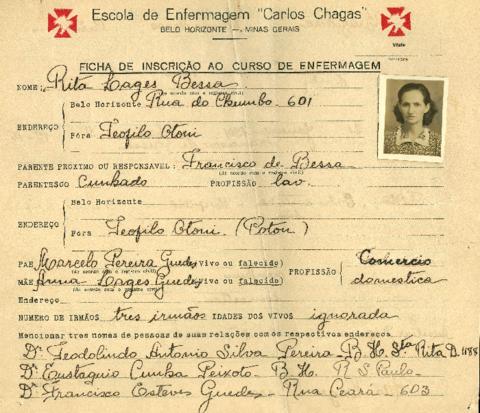 Escola de Enfermagem "Carlos Chagas"
BELO HORIZONTE — MINAS GERAIS
FICHA DE INSCRIÇÃO AO CURSO DE ENFERMAGEM
NOME: Rita Lages Bessa
(de acordo com o registro civil)
Belo Horizonte Rua do Chumbo 601
ENDEREÇO
Fóra Teofilo Otoni
PARENTE PROXIMO OU RESPONSAVEL: Francisco de Bessa
(de acordo com o registro civil)
PARENTESCO Cunhado PROFISSÃO lav.
Belo Horizonte
ENDEREÇO
Fóra Teofilo Otoni (Poton)
PAE Marcelo Pereira Guedes (vivo ou falecido) Comercio
(de acordo com o registro civil) PROFISSÃO
MÃE Anna Lages Guedes (vivo ou falecido) domestica
(de acordo com o registro civil)
Endereço
NUMERO DE IRMÃOS tres irmãos IDADES DOS VIVOS ignorada
Mencionar tres nomes de pessoas de suas relações com os respectivos endereços.
Dr. Teodolindo Antonio Silva Pereira B. H. Sta Rita D. 1188
Dr. Eustaquio Cunha Peixoto B. H. R S Paulo
Dr. Francisco Esteves Guedes Rua Ceará 603